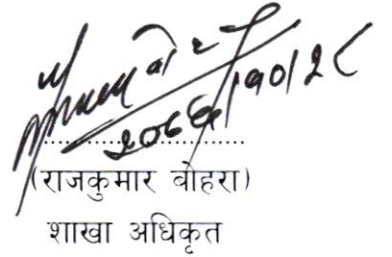 २०६६/१०/२८
(राजकुमार बोहरा)
शाखा अधिकृत